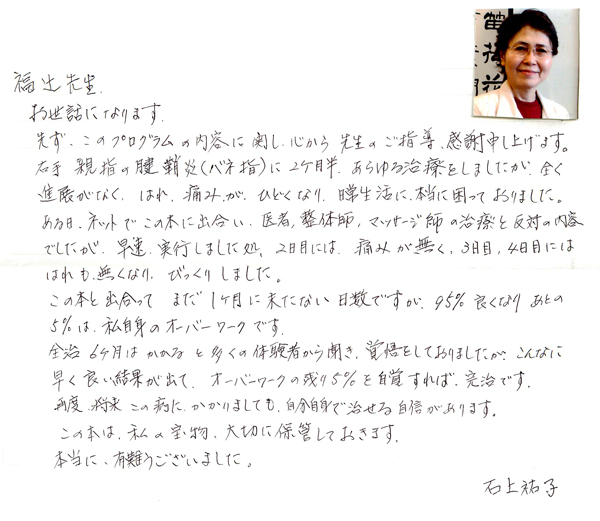 福辻先生.
お世話になります.
先ず、このプログラムの内容に関し、心から先生のご指導、感謝申し上げます。
右手親指の腱鞘炎(バネ指)に2ケ月半、あらゆる治療をしましたが、全く
進展がなく、はれ、痛みが、ひどくなり、日常生活に、本当に困っておりました。
ある日、ネットでこの本に出合い、医者、整体師、マッサージ師の治療と反対の内容
でしたが、早速、実行しました処、2日目には、痛みが無く、3日目、4日目には
はれも、無くなり、びっくりしました。
この本と出合って まだ1ケ月に未たない日数ですが、95% 良くなり あとの
5%は、私自身のオーバーワークです.
全治 6ケ月はかかると多くの体験者から聞き、覚悟をしておりましたが、こんなに
早く良い結果が出て、オーバーワークの残り5%を自覚すれば、完治です.
再度、将来この病に、かかりましても、自分自身で治せる自信があります。
この本は、私の宝物、大切に保管しておきます.
本当に、有難うございました。
石上祐子